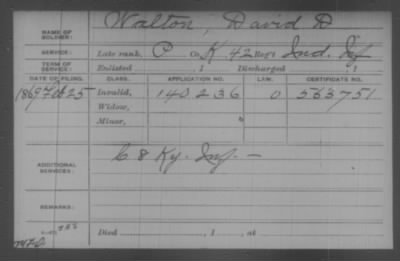 NAME OF SOLDIER: Walton, David D
SERVICE: Late rank, P Co. K, 42 Reg't Ind. Inf
TERM OF SERVICE: Enlisted , 1 Discharged , 1
DATE OF FILING. CLASS. APPLICATION NO. LAW. CERTIFICATE NO.
1869 Feb 25 Invalid, 140236 0 563751
Widow,
Minor,
ADDITIONAL SERVICES: C 8 Ky. Inf. -
REMARKS:
Died , 1 , at